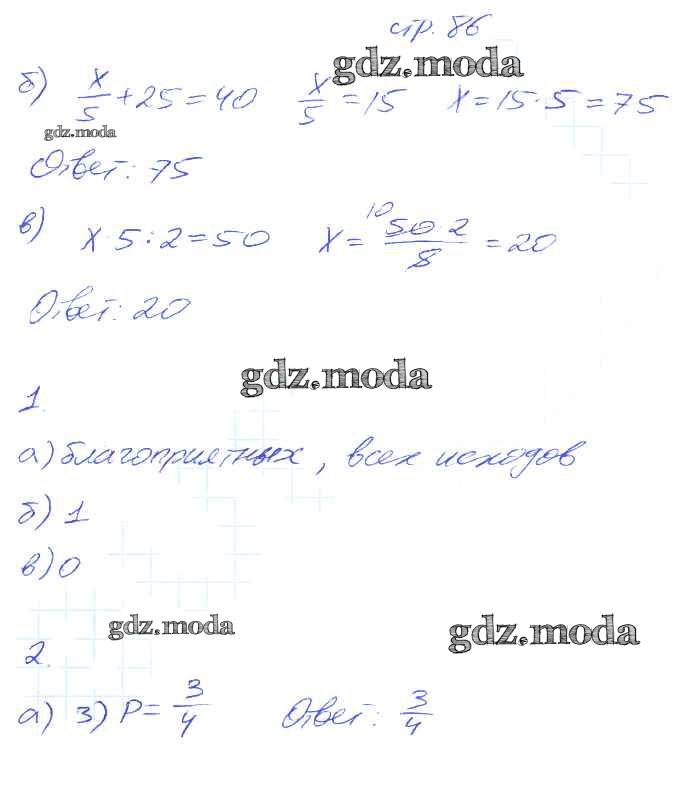 стр. 86
gdz.moda
б) x/5 + 25 = 40 x/5 = 15 x = 15 · 5 = 75
gdz.moda
Ответ: 75
в) x · 5 : 2 = 50 x = 10 50 · 2 / 5 = 20
Ответ: 20
gdz.moda
1.
а) благоприятных, всех исходов
б) 1
в) 0
gdz.moda
gdz.moda
2.
а) 3) P = 3/4 Ответ: 3/4